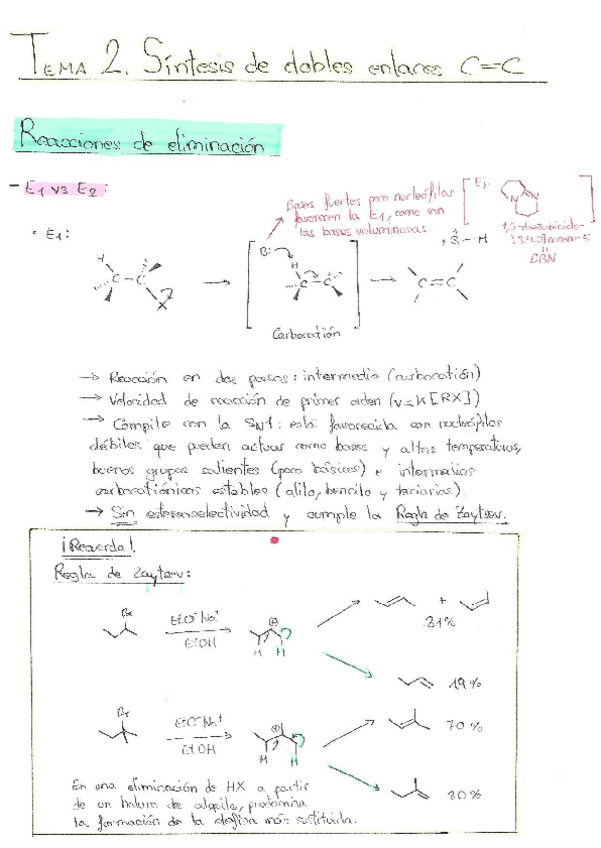 TEMA 2. Síntesis de dobles enlaces C=C
Reacciones de eliminación
- E1 vs E2:
Bases fuertes poco nucleófilas
favorecen la E1, como son
las bases voluminosas
Ej:
DBN
• E1:
H
C-C
X
B:
H
C-C
+
+ B-H
C=C
Carbocatión
→ Reacción en dos pasos: intermedio (carbocatión)
→ Velocidad de reacción de primer orden (v=K[RX])
→ Compite con la SN1: está favorecida con nucleófilos
débiles que pueden actuar como bases y altas temperaturas,
buenos grupos salientes (poco básicos) e intermedios
carbocatiónicos estables (alilo, bencilo y terciarios).
→ Sin estereoselectividad y cumple la Regla de Zaytsev.
¡Recuerda!
Regla de Zaytsev:
Br
EtO⁻Na⁺
EtOH
⊕
H H
+
81%
19%
Br
EtO⁻Na⁺
EtOH
⊕
H H
70%
30%
En una eliminación de HX a partir
de un haluro de alquilo, predomina
la formación de la olefina más sustituida.